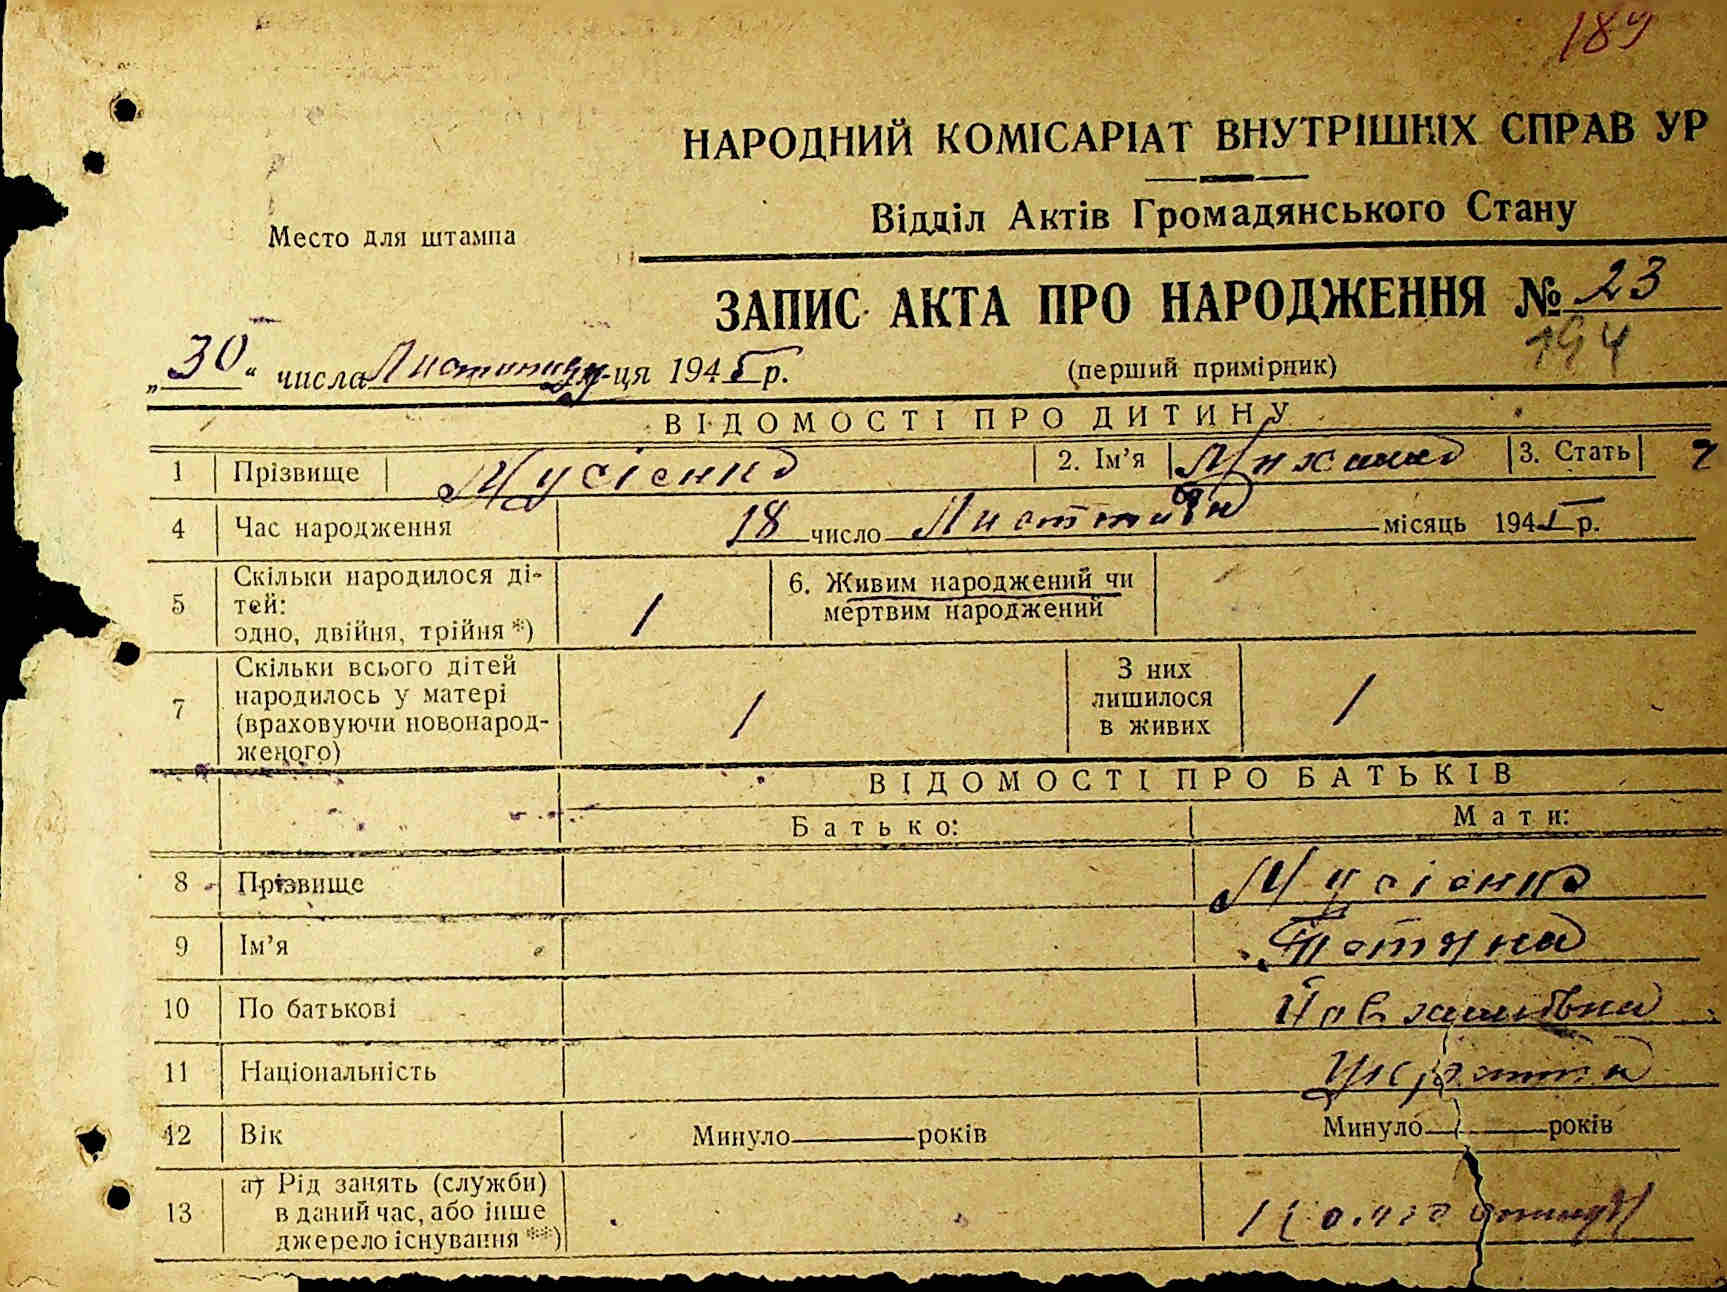 189
НАРОДНИЙ КОМІСАРІАТ ВНУТРІШНІХ СПРАВ УР
Відділ Актів Громадянського Стану
Место для штампа
ЗАПИС АКТА ПРО НАРОДЖЕННЯ № 23
194
„30“ числа Листопаду м-ця 1945 р.
(перший примірник)
ВІДОМОСТІ ПРО ДИТИНУ
1 Прізвище Мусієнко 2. Ім’я Михайло 3. Стать ч
4 Час народження 18 число Листопада місяць 1945 р.
5 Скільки народилося ді-
тей:
одно, двійня, трійня *)
1
6. Живим народжений чи
мертвим народжений
7 Скільки всього дітей
народилось у матері
(враховуючи новонарод-
женого)
1
З них
лишилося
в живих
1
ВІДОМОСТІ ПРО БАТЬКІВ
Батько: Мати:
8 Прізвище Мусієнко
9 Ім’я Тетяна
10 По батькові
11 Національність Українка
12 Вік Минуло — років Минуло — років
13 а) Рід занять (служби)
в даний час, або інше
джерело існування **)